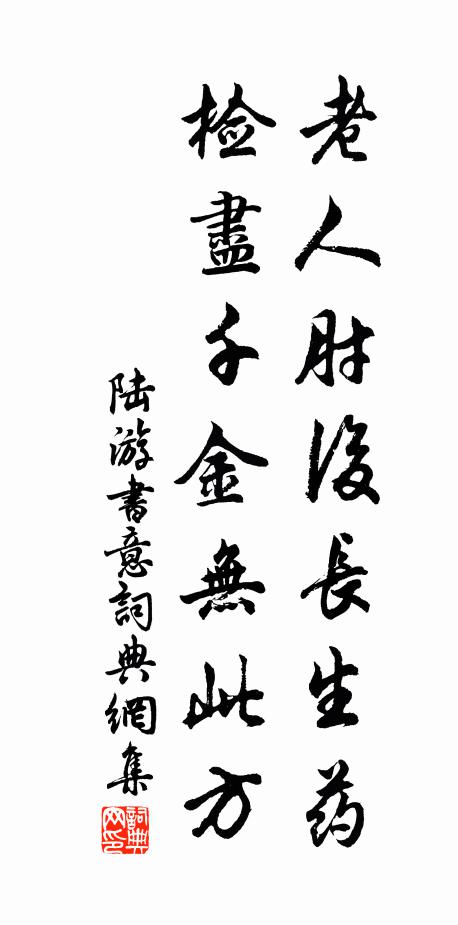 老人肘後長生药
檢盡千金無此方
陆游書意詞典網集
詞典网印